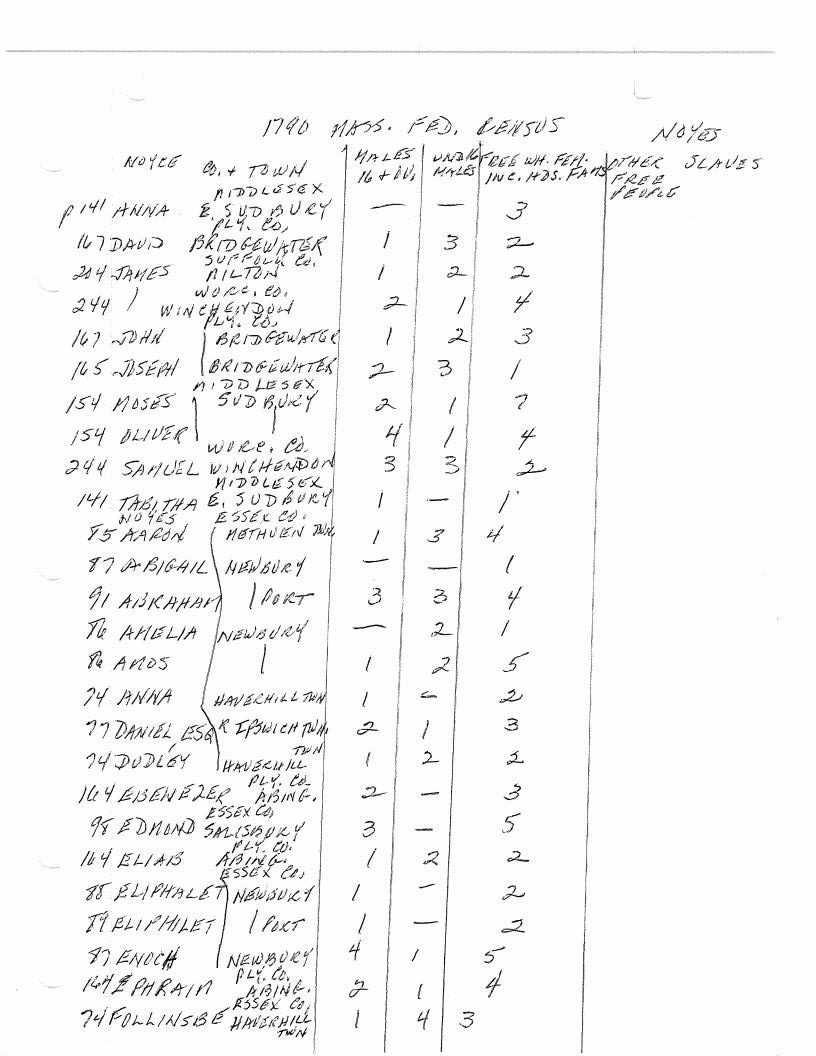 1790 MASS. FED. CENSUS
NOYES
NOYCE CO. + TOWN MALES 16 + OV. UND 16 MALES FREE WH. FEM. INC. HDS. FAMS OTHER FREE PEOPLE SLAVES
MIDDLESEX
P 141 ANNA E. SUDBURY — — 3
PLY. CO.
167 DAVID BRIDGEWATER 1 3 2
SUFFOLK CO.
204 JAMES MILTON 1 2 2
WORC. CO.
244 WINCHENDON 2 1 4
PLY. CO.
167 JOHN BRIDGEWATER 1 2 3
165 JOSEPH BRIDGEWATER 2 3 1
MIDDLESEX
154 MOSES SUDBURY 2 1 7
154 OLIVER 4 1 4
WORC. CO.
244 SAMUEL WINCHENDON 3 3 2
MIDDLESEX
141 TABITHA E. SUDBURY 1 — 1
NOYES ESSEX CO.
85 AARON METHUEN TWN. 1 3 4
87 ABIGAIL NEWBURY — — 1
91 ABRAHAM PORT 3 3 4
86 AMELIA NEWBURY — 2 1
86 AMOS 1 2 5
74 ANNA HAVERHILL TWN 1 - 2
77 DANIEL ESQ R IPSWICH TWN. 2 1 3
TWN
74 DUDLEY HAVERHILL 1 2 2
PLY. CO
164 EBENEZER ABING. 2 — 3
ESSEX CO,
98 EDMOND SALISBURY 3 — 5
PLY. CO.
164 ELIAB ABING. 1 2 2
ESSEX CO,
88 ELIPHALET NEWBURY 1 - 2
89 ELIPHILET PORT 1 — 2
87 ENOCH NEWBURY 4 1 5
PLY. CO.
164 EPHRAIM ABING. 2 1 4
ESSEX CO,
74 FOLLINSBE HAVERHILL 1 4 3
TWN